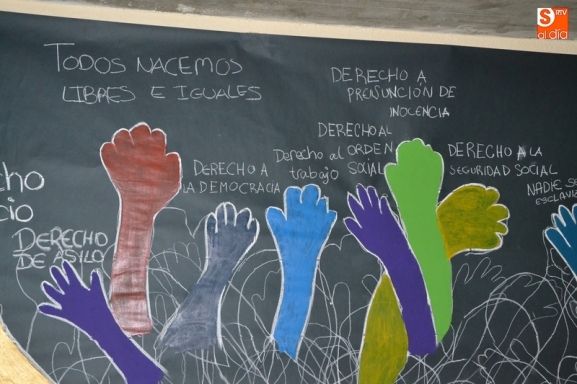 S RTV
al día
TODOS NACEMOS
LIBRES E IGUALES
DERECHO A
PRESUNCIÓN DE
INOCENCIA
DERECHO AL
ORDEN
SOCIAL
DERECHO A
LA DEMOCRACIA
Derecho al
trabajo
DERECHO A LA
SEGURIDAD SOCIAL
NADIE SE
ESCLAVI
cho
cio
DERECHO
DE ASILO